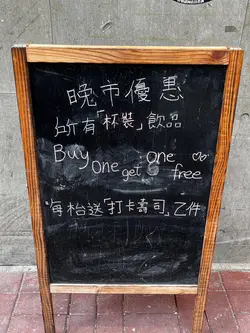 晚市優惠
所有「杯裝」飲品
Buy One get one free
每枱送「打卡壽司」乙件